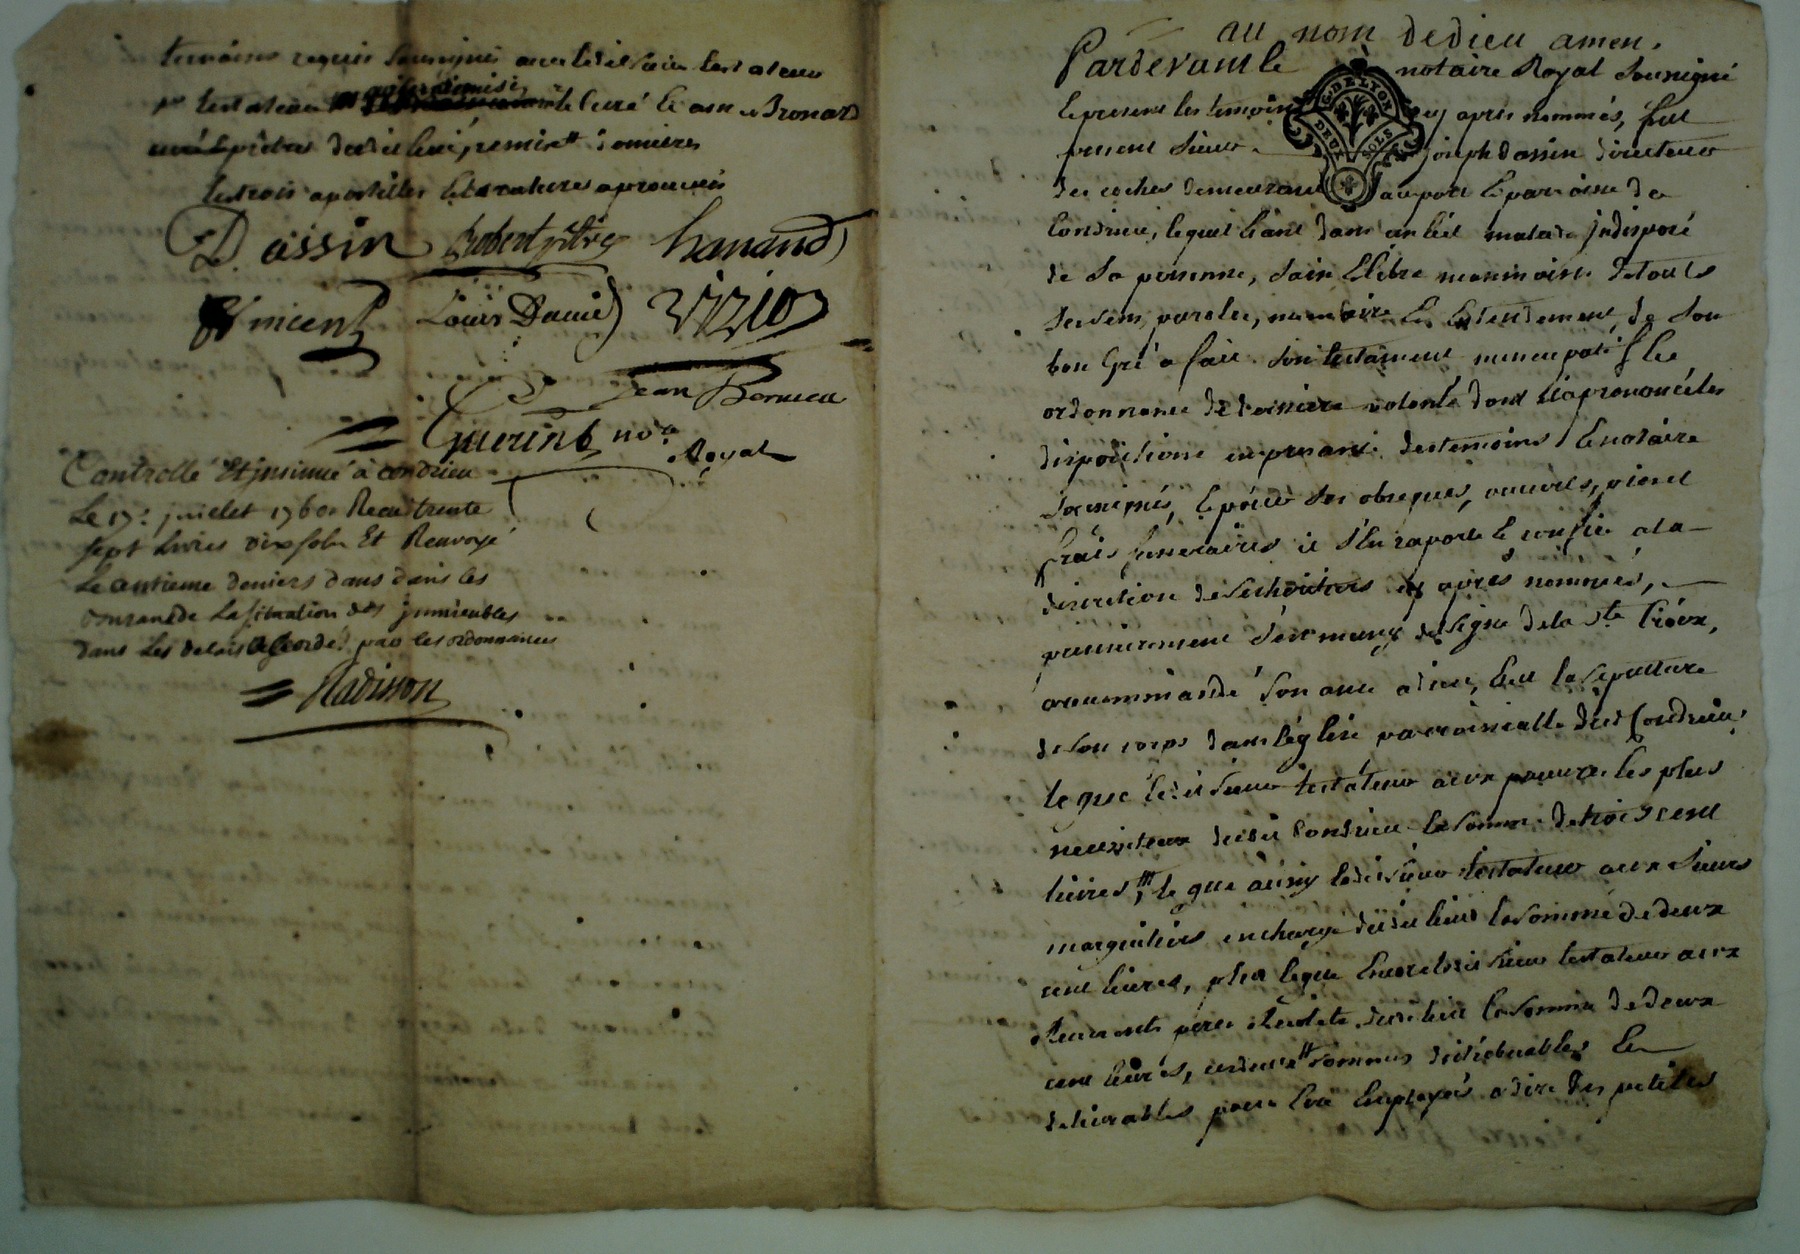 temoins requis soussignés avec ledit sieur testateur
testateur le curé
dudit lieu,
les trois apostilles et ratures aprouvées
Dassin Robert ptre hanand
Vincent Louis Daniel
Jean Bernieu
Guerin nore
Royal
Controllé Et insinué à condrieu
Le 17e juillet 1760 Recu trente
sept Livres dix sols Et Renvoyé
Le antieme deniers dans les
de La situation des immeubles
dans les delais accordés par les ordonnances
Radisson
au nom de dieu amen.
Pardevant le notaire Royal soussigné
G. DE LYON
DEUX SOLS
et presents les temoins cy apres nommés, fut
present sieur joseph dassin directeur
des coches demeurant au port et parroisse de
Condrieu, lequel étant dans un lit malade indisposé
de sa personne, sain et libre neanmoins de touts
ses sens, parolle, memoire et entendement, de son
bon gré a fait son testament nuncupatif et
ordonnance de derniere volonté dont il a prononcé les
dispositions en presance des temoins et notaire
soussignés, et pour ses obseques, oeuvres pies et
frais funeraires il s'en raporte et confie a la
discretion de ses heritiers cy après nommés,
premierement s'est muny du signe de la ste Croix,
recommandé son ame a dieu, élu la sepulture
de son corps dans l'église parroissialle dudit Condrieu,
legue ledit sieur testateur aux pauvres les plus
necessiteux dudit Condrieu la somme de trois cent
livres, legue ausy ledit sieur testateur aux sieurs
marguilliers en charge dudit lieu la somme de deux
cent livres, plus legue encore ledit sieur testateur aux
Reverends peres Recolets dudit lieu la somme de deux
cent livres, sommes
delivrables pour être employés a dire des petites